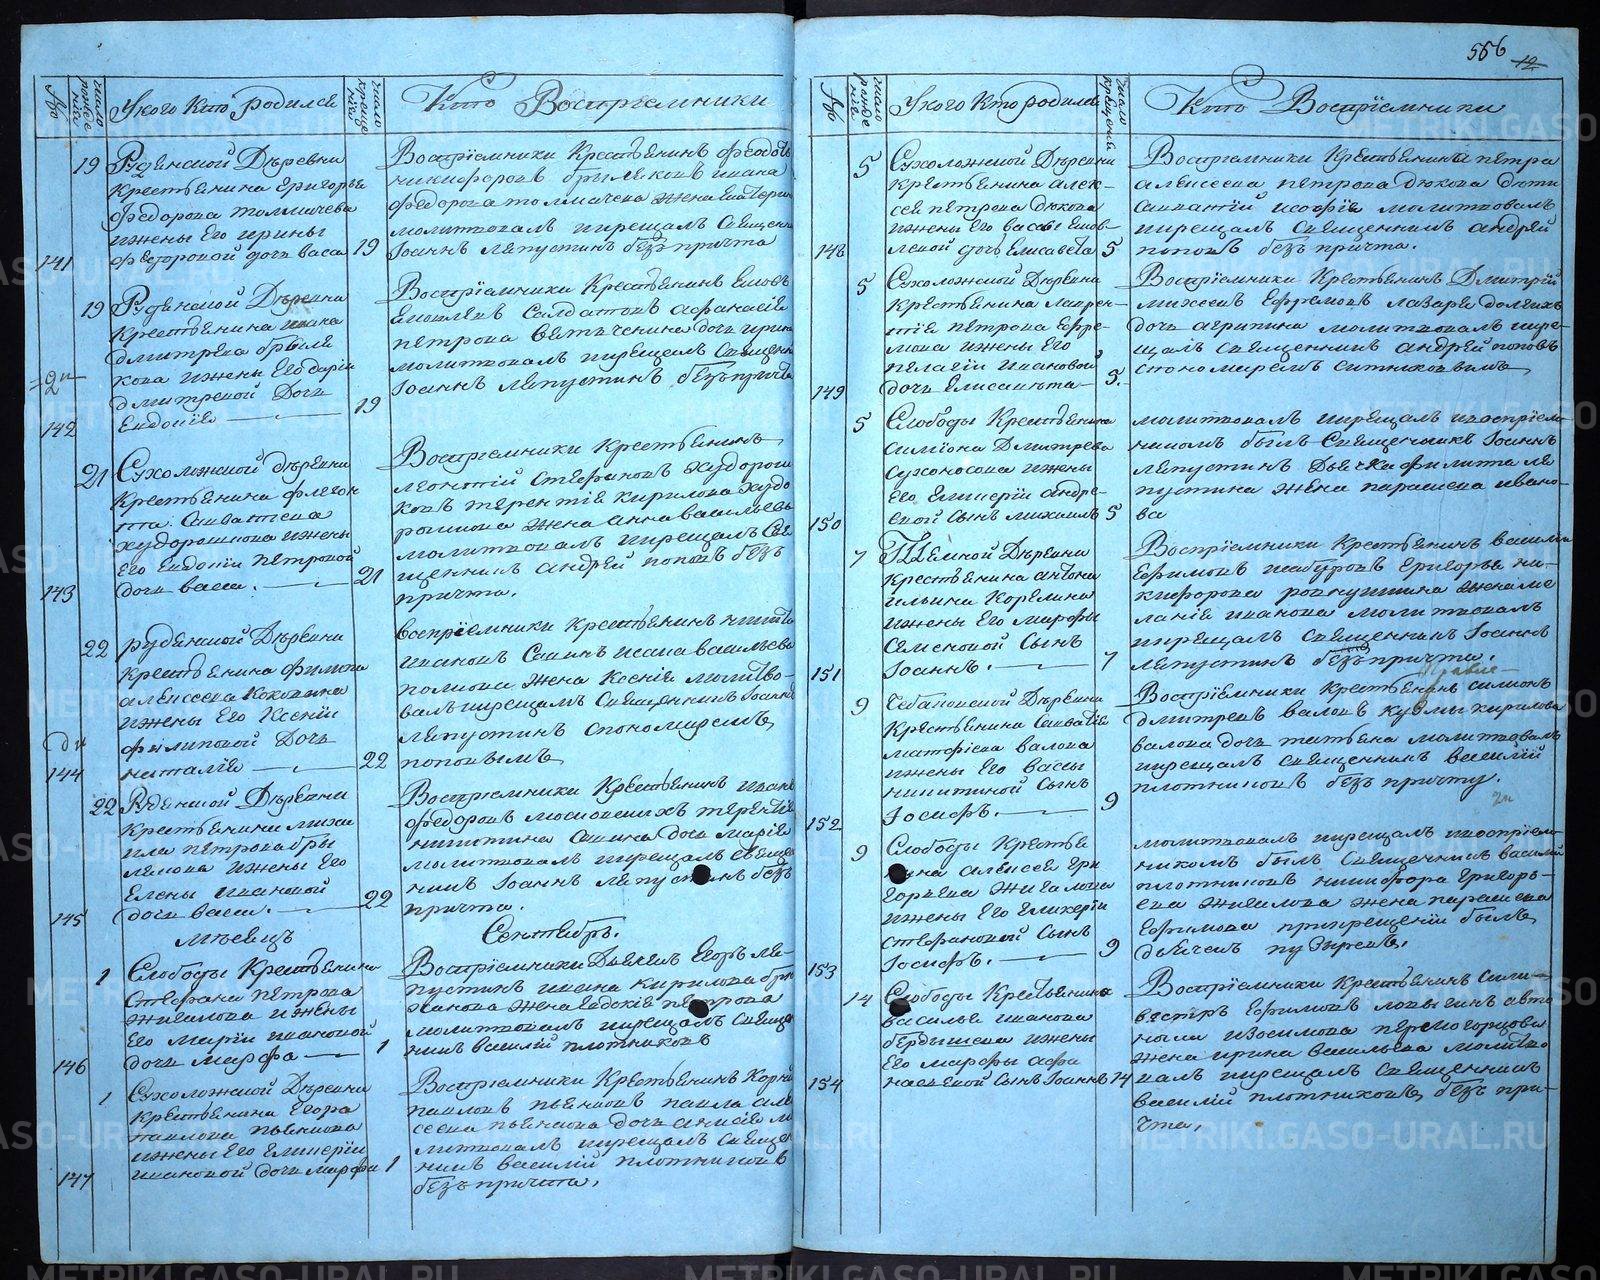 556
12
№
число рождения
У кого кто родился
число крещения
Кто Восприемники
19
Руденской Деревни
крестьянина Григорья
Федорова толмачева
и жены Его ирины
Федоровой дочь васа
141
19
Восприемники Крестьянинъ Федотъ
никифоровъ брылковъ ивана
Федорова толмачева жена Катерин
молитвовалъ и крещалъ Священн
Иоаннъ ляпустинъ безъ причта
19
Руденской Деревни
крестьянина ивака
дмитрева брыля
кова и жены Его дарии
дмитревой Дочь
Евдокiя
142
19
Восприемники Крестьянинъ Яковъ
Яковлевъ Салдатовъ афанасiя
петрова вятченина дочь ирина
молитвовалъ и крещалъ Священн
Иоаннъ ляпустинъ безъ причта
21
Сухоложской деревни
Крестьянина флегон
та Савватеева
худорошкова и жены
Его Евдокiи петровой
дочь васса.
143
21
Восприемники крестьянинъ
леонтiй стефановъ худорош
ковъ терентiя кирилова худо
рошкова жена анна васильева
молитвовалъ и крещалъ Свя
щенникъ андрей поповъ безъ
причта.
22
руденской Деревни
крестьянина филипа
алексеева Коковина
и жены Его Ксенiи
филиповой Дочь
наталiя
144
22
воспрiемники крестьянинъ никита
ивановъ Савинъ исака васильева
полкова жена Ксенiя молитво-
валъ и крещалъ Священникъ Iоаннъ
ляпустинъ спономаремъ
поповымъ
22
Руденской Деревни
крестьянина миха
ила петрова бры
лякова и жены Его
Елены ивановой
дочь васса.
145
22
Восприемники Крестьянинъ иванъ
федоровъ московскихъ терентiя
никитина Савина дочь Марiя
молитвовалъ и крещалъ Священ
никъ Iоаннъ ляпустинъ безъ
причта.
Мѣсяцъ
Сентябрь.
1
Слободы Крестьянина
Стефана петрова
жигалова и жены
Его марiи ивановой
дочь марфа
146
1
Восприемники Дьячекъ Егоръ ля-
пустинъ ивана кирилова бры
жанова жена Евдокiя петрова
молитвовалъ и крещалъ Священ
никъ василiй плотниковъ
1
Сухоложской Деревни
крестьянина Егора
павлова пьянкова
и жены Его Гликерiи
ивановой дочь марфа
147
1
Восприемники Крестьянинъ Корни
павловъ пьянковъ павла але
сеева пьянкова дочь анисiя мо
литвовалъ и крещалъ Священ
никъ василiй плотниковъ
безъ причта.
№
число рождения
У кого кто родился
число крещения
Кто Воспрiемники
5
Сухоложской Деревни
крестьянина алек-
сея петрова дюкова
и жены Его вассы яков-
левой дочь Елисавета
148
5
Восприемники Крестьянинъ петра
алексеева петрова дюкова дети
савватiй и софiя молитвовалъ
и крещалъ Священникъ андрей
поповъ безъ причта.
5
Сухоложской Деревни
крестьянина лаврен-
тiя петрова Ефре-
мова и жены Его
пелагiи ивановой
дочь Елисавета
149
5.
Воспрiемники Крестьянинъ Дмитрiй
моисеевъ Ефремовъ лазаря долгихъ
дочь агрипина молитвовалъ и кре-
щалъ Священникъ андрей поповъ
спономаремъ ситниковымъ
5
Слободы Крестьянина
симiона Дмитрева
сухоносова и жены
Его Гликерiи андре-
евой сынъ михаилъ
150
5
молитвовалъ и крещалъ и воспрiем-
никомъ былъ Священникъ Iоаннъ
ляпустинъ Дьячка филипа ля
пустина жена параскева ивано-
ва
7
Крестьянина антона
ильина Корелина
и жены Его марфы
Семеновой Сынъ
Iоаннъ.
151
7
Воспрiемники Крестьянинъ василiй
Ефимовъ Григорья ни-
кифорова жена ме
ланiя иванова молитвовалъ
и крещалъ Священникъ Iоаннъ
ляпустинъ безъ причта.
9
Крестьянина Савватiя
матфiева валова
и жены Его вассы
никитиной Сынъ
Iосифъ.
152
9
Воспрiемники Крестьянинъ симонъ
дмитревъ валовъ кузмы кирилова
валова дочь татьяна молитвовалъ
и крещалъ Священникъ василiй
плотниковъ безъ причту.
9
Слободы Крестья
нина алексея Гри
горьева жигалова
и жены Его Гликерiи
стефановой Сынъ
Iосифъ.
153
9
молитвовалъ и крещалъ и воспрiем-
никомъ былъ Священникъ василiй
плотниковъ никифора Григорь-
ева жигалова жена параскева
Ефимова при крещенiи былъ
дьячекъ пузыревъ.
14
Слободы Крестьянина
василья иванова
бердышева и жены
Его марфы афа
насьевой Сынъ Iоаннъ
154
14
Воспрiемники Крестьянинъ Силь-
вестръ Ефимовъ
жена ирина васильева молитво
валъ и крещалъ Священникъ
василiй плотниковъ безъ при-
чта.
METRIKI.GASO-URAL.RU